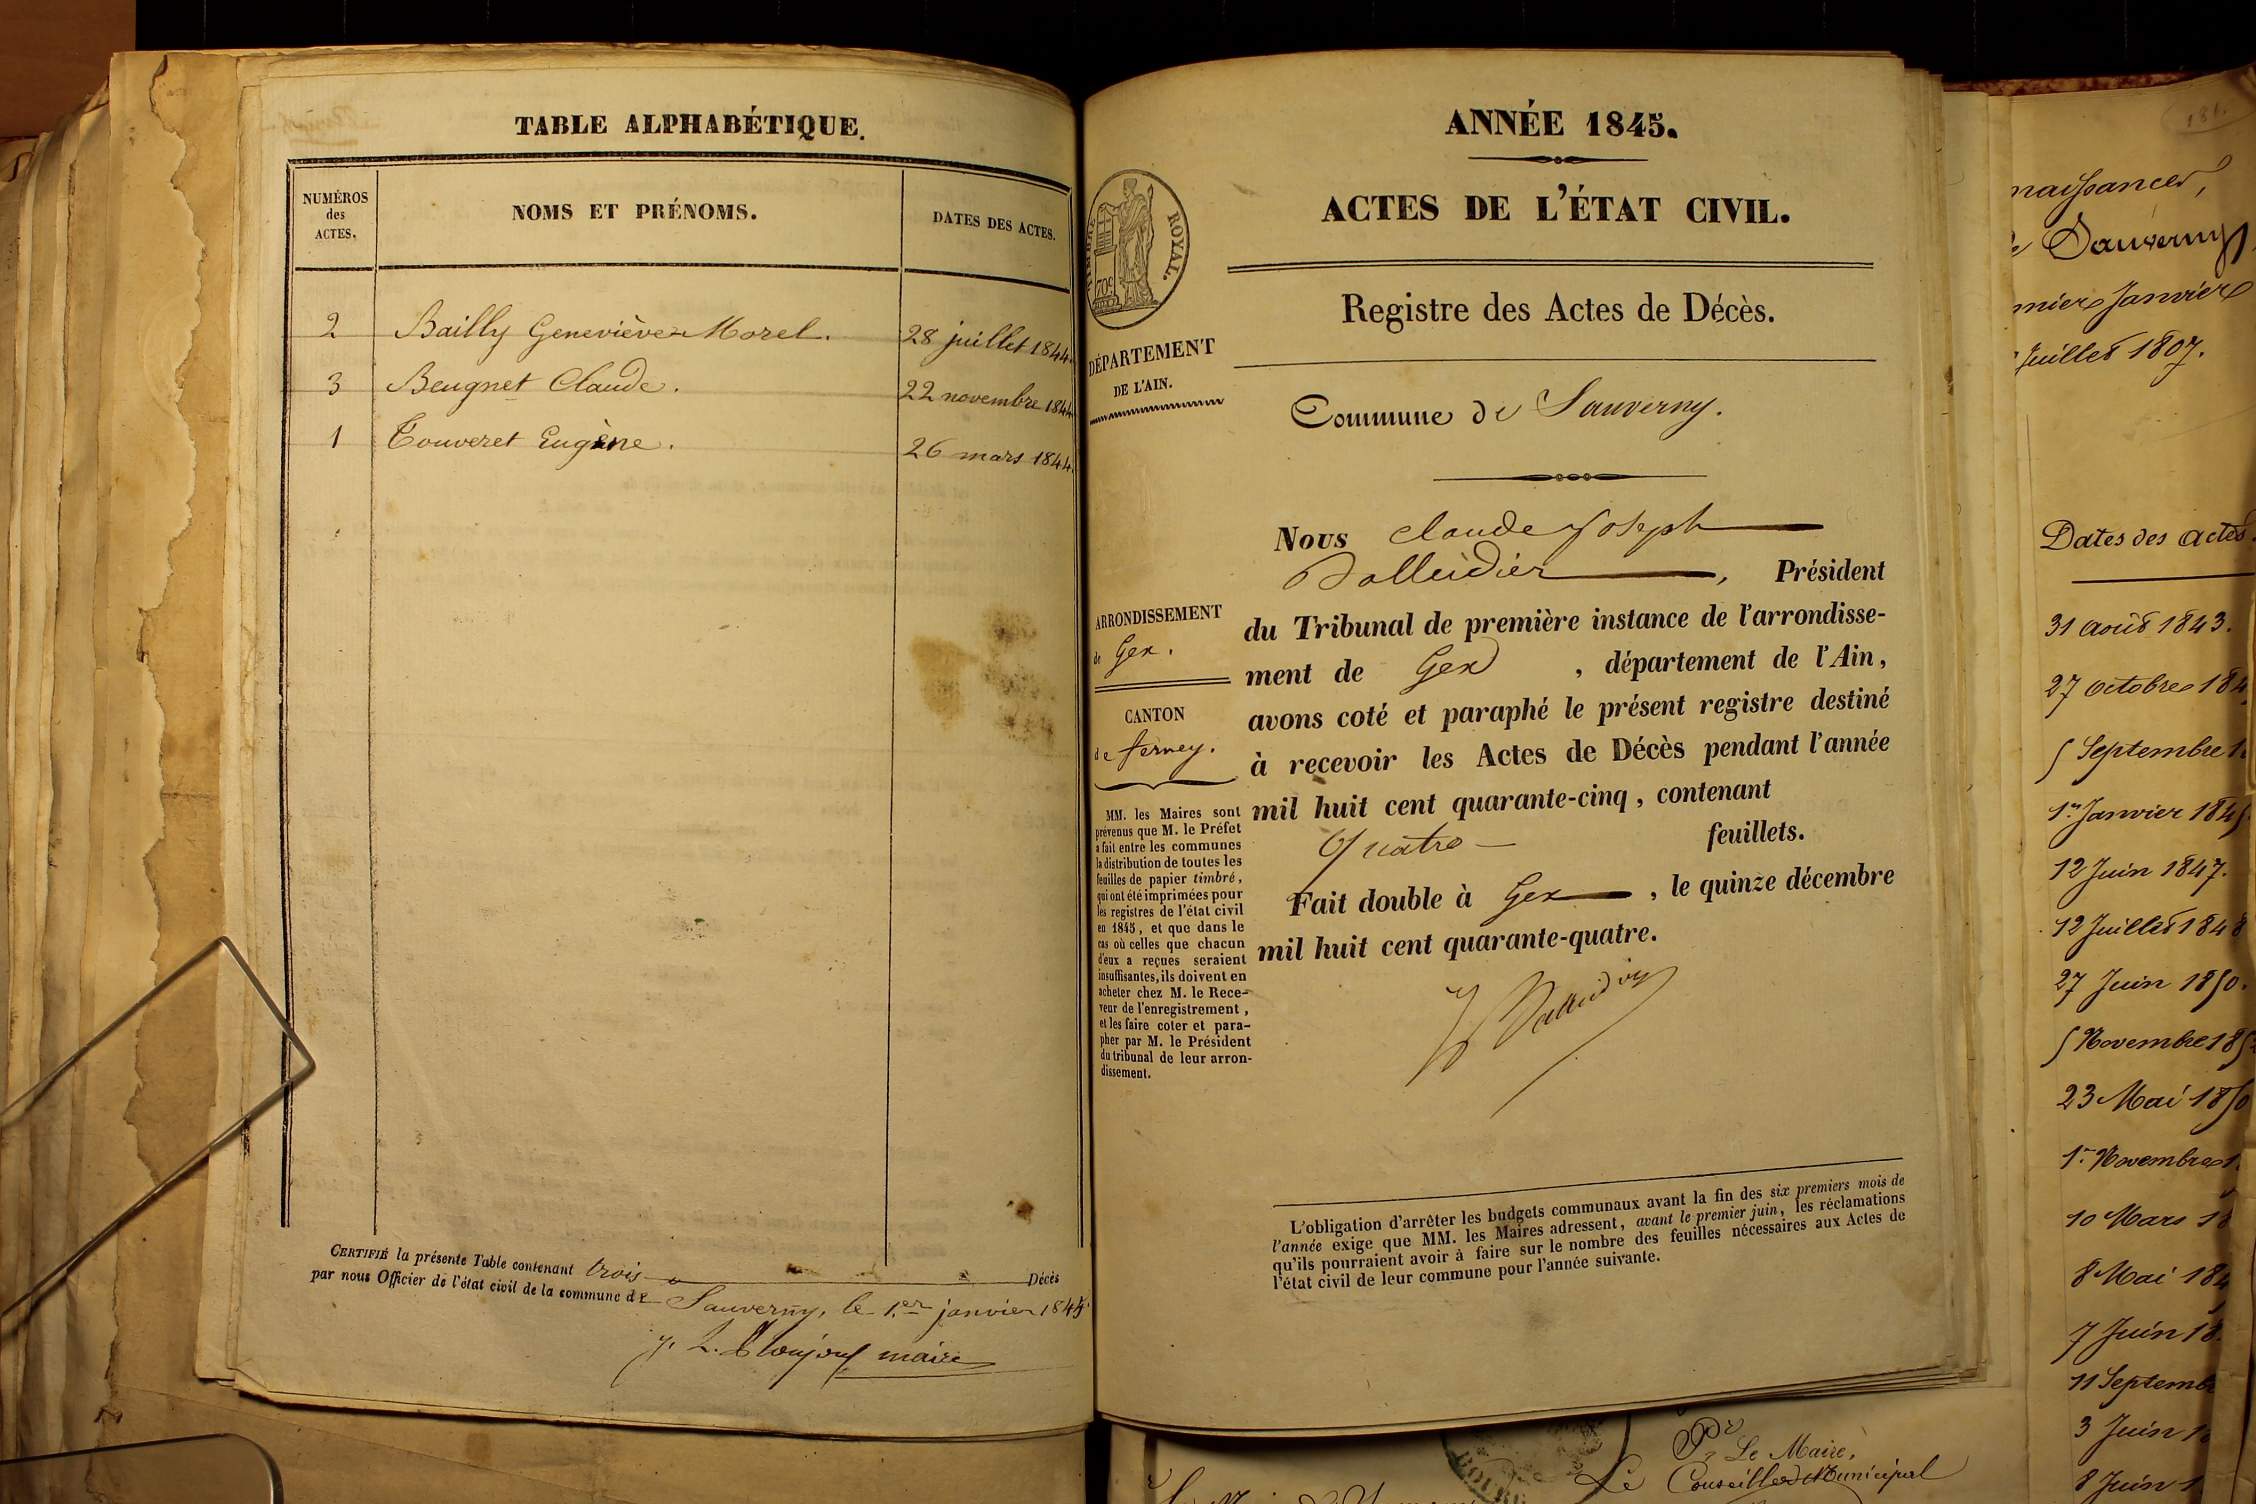 TABLE ALPHABÉTIQUE.
NUMÉROS
des
ACTES.
NOMS ET PRÉNOMS.
DATES DES ACTES.
2 Bailly Geneviève Morel. 28 juillet 1844.
3 Beugnet Claude. 22 novembre 1844
1 Touveret Eugène. 26 mars 1844.
CERTIFIÉ la présente Table contenant trois Décès
par nous Officier de l'état civil de la commune de
Sauverny, le 1.er janvier 1845
maire
ANNÉE 1845.
ACTES DE L'ÉTAT CIVIL.
TIMBRE ROYAL.
70c
Registre des Actes de Décès.
DÉPARTEMENT
DE L'AIN.
Commune de Sauverny.
Nous Claude Joseph
, Président
du Tribunal de première instance de l'arrondisse-
ment de Gex , département de l'Ain,
avons coté et paraphé le présent registre destiné
à recevoir les Actes de Décès pendant l'année
mil huit cent quarante-cinq, contenant
Quatre feuillets.
Fait double à Gex , le quinze décembre
mil huit cent quarante-quatre.
ARRONDISSEMENT
de Gex.
CANTON
de ferney.
MM. les Maires sont
prévenus que M. le Préfet
a fait entre les communes
la distribution de toutes les
feuilles de papier timbré,
qui ont été imprimées pour
les registres de l'état civil
en 1845, et que dans le
cas où celles que chacun
d'eux a reçues seraient
insuffisantes, ils doivent en
acheter chez M. le Rece-
veur de l'enregistrement,
et les faire coter et para-
pher par M. le Président
du tribunal de leur arron-
dissement.
L'obligation d'arrêter les budgets communaux avant la fin des six premiers mois de
l'année exige que MM. les Maires adressent, avant le premier juin, les réclamations
qu'ils pourraient avoir à faire sur le nombre des feuilles nécessaires aux Actes de
l'état civil de leur commune pour l'année suivante.
181.
naissances,
Sauverny
mier Janvier
Juillet 1807.
Dates des actes.
31 août 1843.
27 octobre 184
5 Septembre 1
1er Janvier 1845
12 Juin 1847.
12 Juillet 1848
27 Juin 1850.
5 Novembre 185
23 Mai 1850
1er Novembre 1
10 Mars 18
8 Mai 184
7 Juin 18
11 Septemb
3 Juin 1
8 Juin 1
Pr Le Maire,
Le Conseiller Municipal